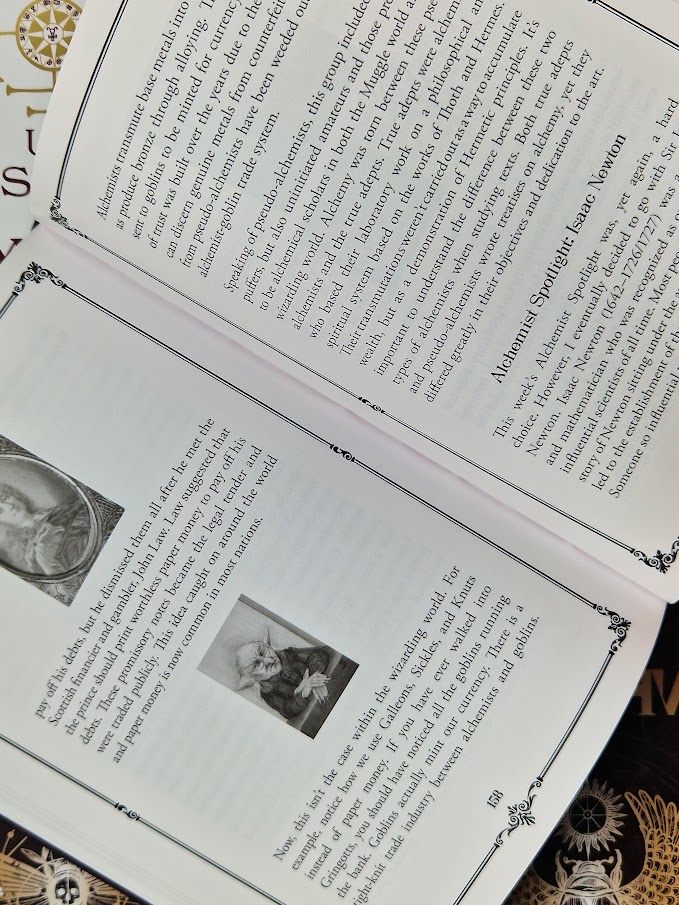 pay off his debts, but he dismissed them all after he met the
Scottish financier and gambler, John Law. Law suggested that
the prince should print worthless paper money to pay off his
debts. These promissory notes became the legal tender and
were traded publicly. This idea caught on around the world
and paper money is now common in most nations.
Now, this isn't the case within the wizarding world. For
example, notice how we use Galleons, Sickles, and Knuts
instead of paper money. If you have ever walked into
Gringotts, you should have noticed all the goblins running
the bank. Goblins actually mint our currency. There is a
tight-knit trade industry between alchemists and goblins.
158
Alchemists transmute base metals into
as produce bronze through alloying.
sent to goblins to be minted for currency
of trust was built over the years due to the
can discern genuine metals from counterfeit
from pseudo-alchemists have been weeded ou
alchemist-goblin trade system.
Speaking of pseudo-alchemists, this group include
puffers, but also uninitiated amateurs and those pre
to be alchemical scholars in both the Muggle world a
wizarding world. Alchemy was torn between these pse
alchemists and the true adepts. True adepts were alchem
who based their laboratory work on a philosophical an
spiritual system based on the works of Thoth and Hermes.
Their transmutations weren't carried out as a way to accumulate
wealth, but as a demonstration of Hermetic principles. It's
important to understand the difference between these two
types of alchemists when studying texts. Both true adepts
and pseudo-alchemists wrote treatises on alchemy, yet they
differed greatly in their objectives and dedication to the art.
Alchemist Spotlight: Isaac Newton
This week's Alchemist Spotlight was, yet again, a hard
choice. However, I eventually decided to go with Sir I
Newton. Isaac Newton (1642–1726/1727) was a
and mathematician who was recognized as o
influential scientists of all time. Most pe
story of Newton sitting under the
led to the establishment of th
Someone so influential